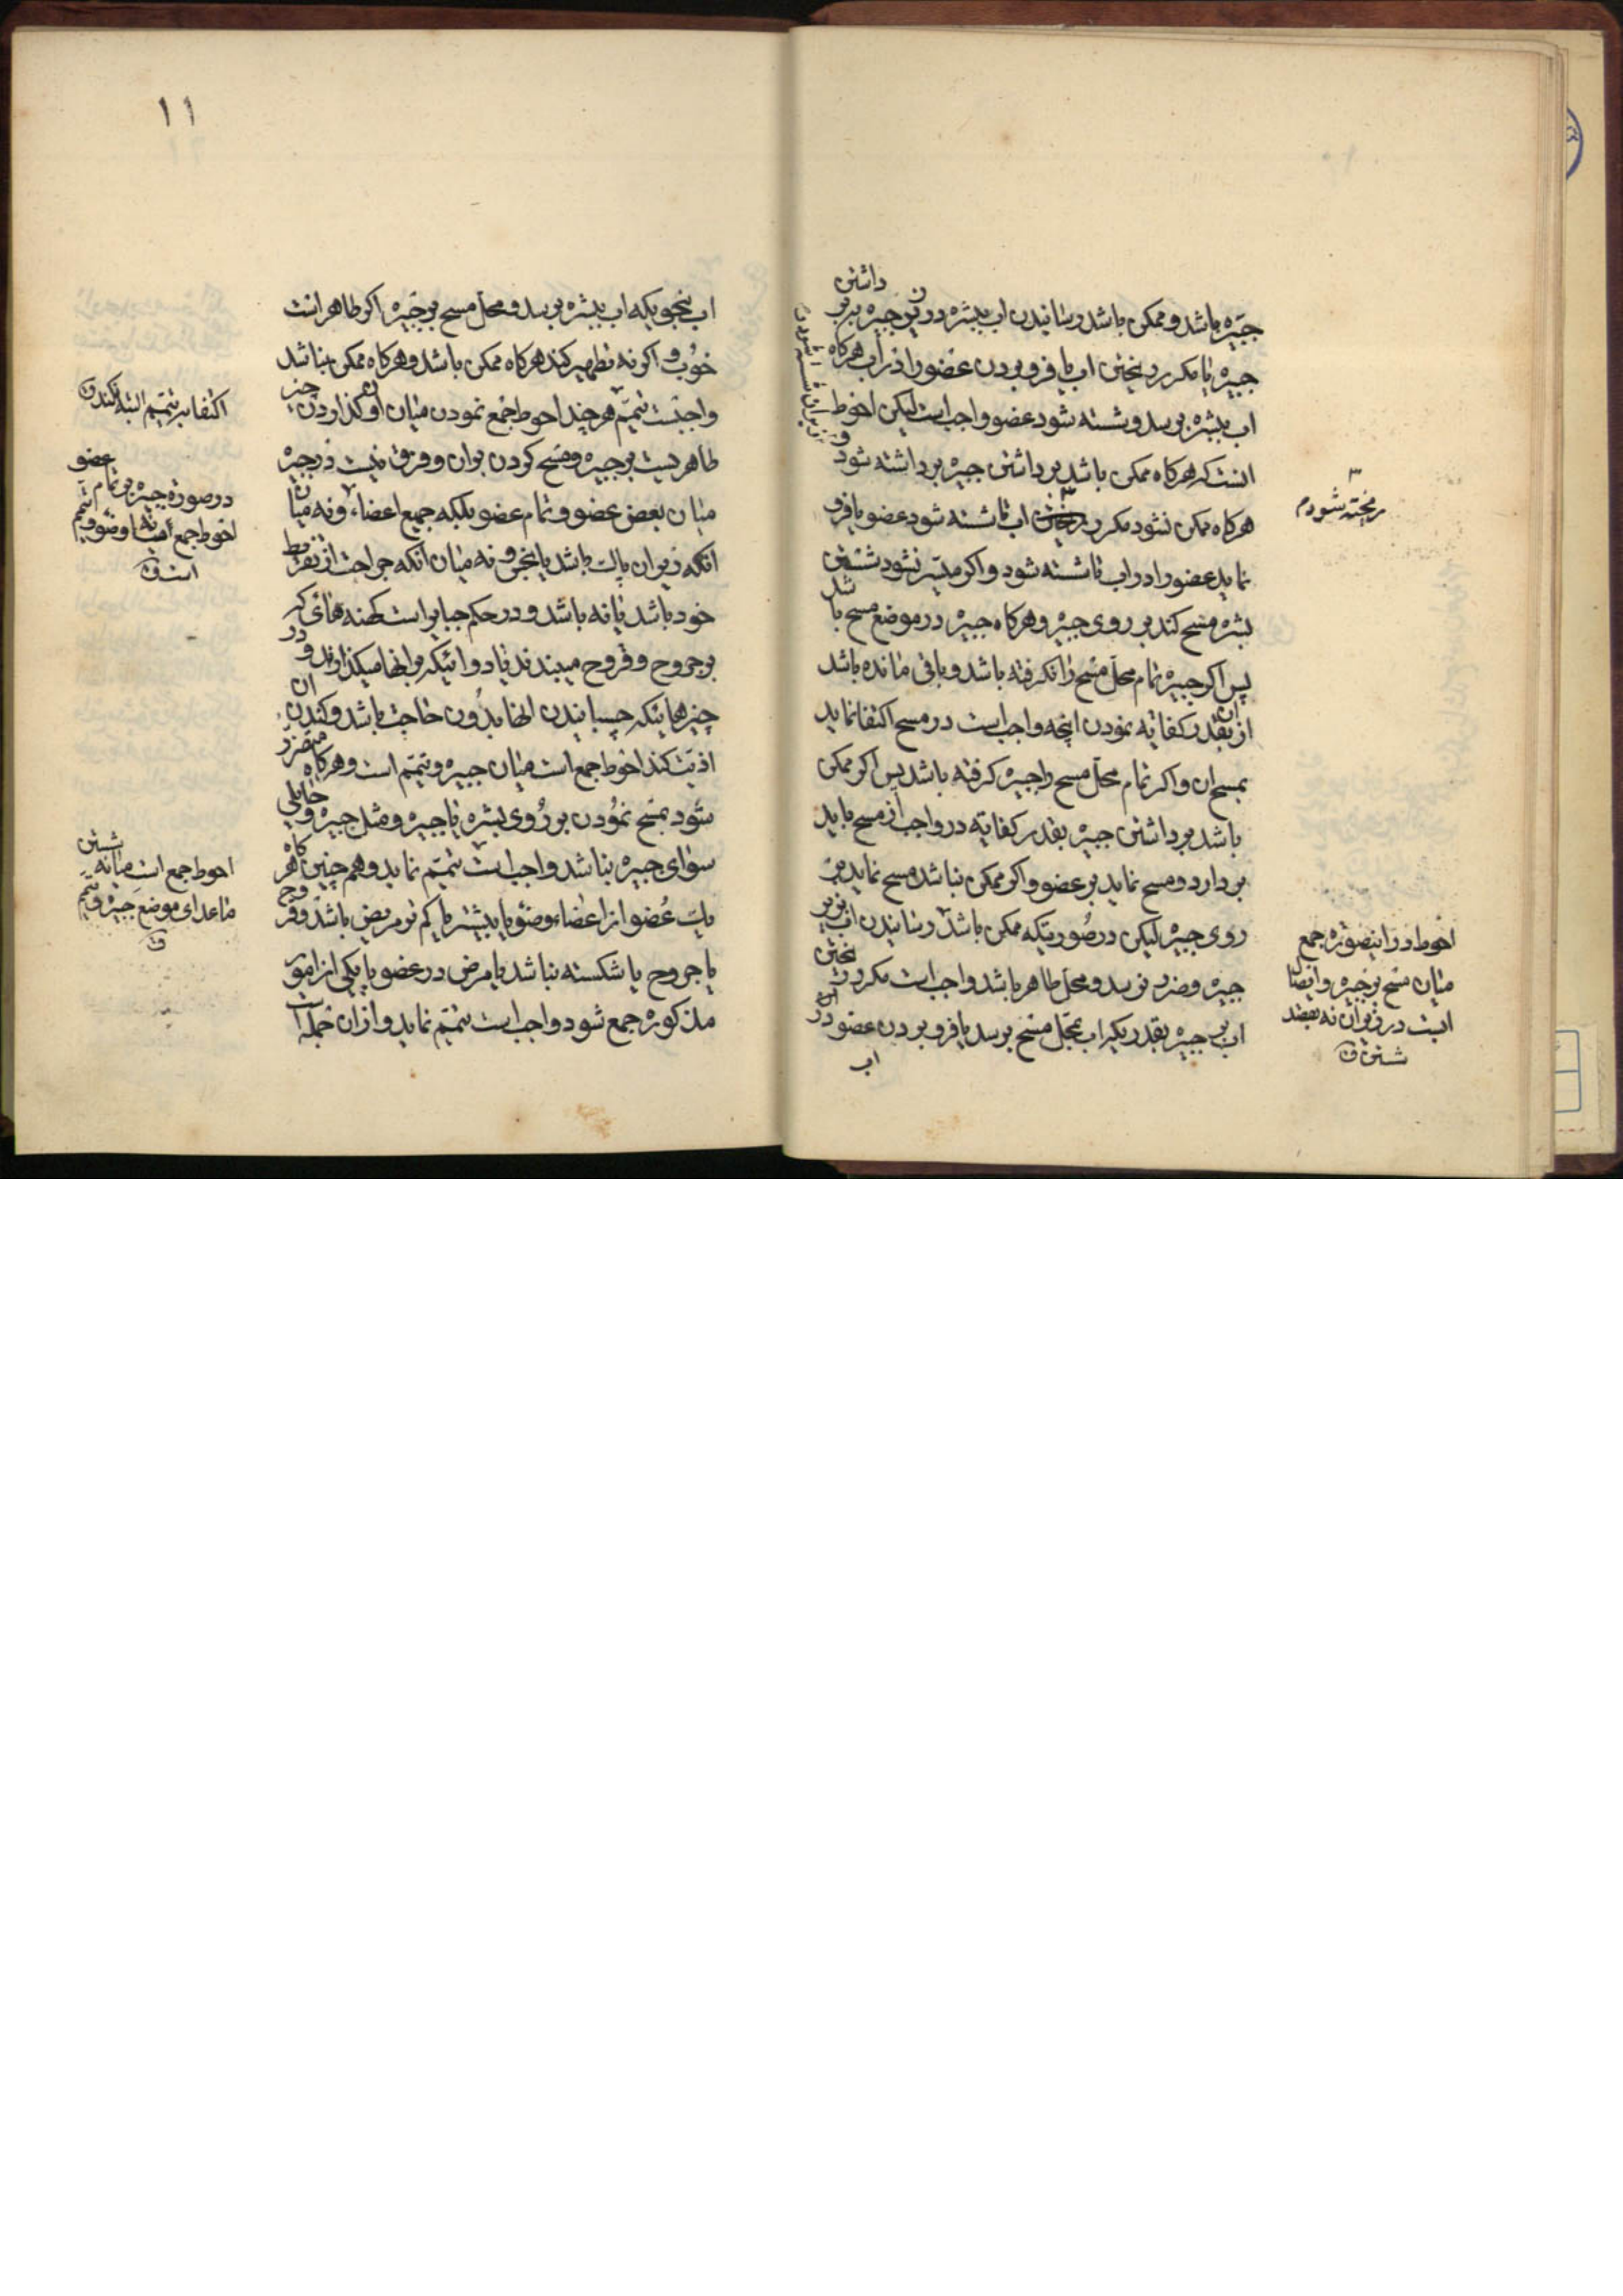 جبیره باشد و ممکن باشد رسانیدن اب ببشره در زیر جبیره ببر داشتن
جبیره یا مکرر ریختن اب یا فرو بردن عضو را در اب هرگاه
اب ببشره برسد و شسته شود عضو واجب است لیکن احوط
انست که هرگاه ممکن باشد برداشتن جبیره برداشته شود و
هرگاه ممکن نشود مکرر ریختن اب تا شسته شود عضو یا فرو
نماید عضو را در اب تا شسته شود و اگر میسر نشود شستن
بشره مسح کند بر روی جبیره و هرگاه جبیره در موضع مسح باشد
پس اگر جبیره تمام محل مسح را نگرفته باشد و باقی مانده باشد
از ان بقدر کفایه نمودن انچه واجب است در مسح اکتفا نماید
بمسح ان و اگر تمام محل مسح را جبیره گرفته باشد پس اگر ممکن
باشد برداشتن جبیره بقدر کفایه در واجب از مسح باید
بردارد و مسح نماید بر عضو و اگر ممکن نباشد مسح نماید بر
روی جبیره لیکن در صورتیکه ممکن باشد رسانیدن اب بزیر
جبیره و ضرر نرسد و محل طاهر باشد واجب است مکرر ریختن
اب بر جبیره بقدریکه اب بمحل مسح برسد یا فرو بردن عضو در
اب
ریخته شود م
احوط در اینصوره جمع
میان مسح بر جبیره و ایصال
ابست در زیر ان نه بقصد
شستن ق
۱۱
اب بنحویکه اب ببشره برسد و محل مسح بر جبیره اگر طاهر است
خوب و اگر نه تطهیر کند هرگاه ممکن باشد و هرگاه ممکن نباشد
واجبست تیمم هر چند احوط جمع نمودن میان او و گذاردن چیز
طاهریست بر جبیره و مسح کردن بران و فرق نیست در جبیره
میان بعض عضو و تمام عضو بلکه جمیع اعضاء و نه میان
انکه زیر ان پاک باشد یا نجس و نه میان انکه جراحت از تفریط
خود باشد یا نه باشد و در حکم جبایر است کهنه هائی که
بر جروح و قروح میبندند یا دوائیکه بر انها میگذارند و در
چیزهائیکه چسبانیدن انها بدون حاجت باشد و کندن ان
اذیت کند احوط جمع است میان جبیره و تیمم است و هرگاه متضرر
شود بمسح نمودن بر روی بشره یا جبیره و مثل جبیره و حایلی
سوای جبیره نباشد واجب است تیمم نماید و هم چنین هرگاه
یک عضو از اعضاء وضو یا بیشتر یا کم تر مریض باشد و قروح
یا جروح یا شکسته نباشد یا مرض در عضو با یکی از امور
مذکوره جمع شود واجب است تیمم نماید و از ان جمله است
اکتفا بر تیمم البته نکند ق
در صورة جبیره بر تمام عضو
احوط جمع میانه وضو و تیمم
است ق
احوط جمع است میانه شستن
ماعدای موضع جبیره و تیمم
ق